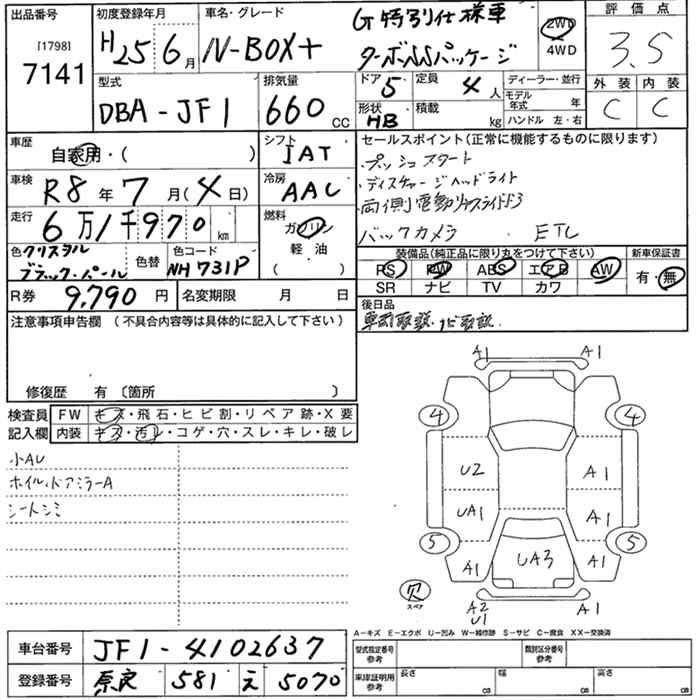 出品番号
[1798]
7141
初度登録年月
H25 6月
車名・グレード
N-BOX+
G 特別仕様車
ターボSSパッケージ
2WD
4WD
評価点
3.5
外装 内装
C C
型式
DBA-JF1
排気量
660 CC
ドア 5
定員 4 人
形状 HB
積載 kg
ディーラー・並行
モデル年式 年
ハンドル 左・右
車歴
自家用・( )
車検 R8年7月(4日)
走行 6万1千970km
色 クリスタルブラックパール
色替
色コード NH731P
シフト
IAT
冷房
AAC
燃料
ガソリン
軽油
( )
R券 9,790円
名変期限 月 日
セールスポイント(正常に機能するものに限ります)
・プッシュスタート
・ディスチャージヘッドライト
・両側電動スライドドア
バックカメラ ETC
装備品(純正品に限り丸をつけて下さい)
PS PW ABS エアB AW
SR ナビ TV カワ
新車保証書
有・無
後日品
車両取説・ナビ取説
注意事項申告欄 (不具合内容等は具体的に記入して下さい)
修復歴 有 〔箇所 〕
検査員記入欄
FW キズ・飛石・ヒビ割・リペア跡・X要
内装 キズ・汚レ・コゲ・穴・スレ・キレ・破レ
小AU
ホイル、ドアミラーA
シートシミ
A1 A1
4 4
U2 A1
UA1 A1
5 5
A1 UA3 A1
欠
スペア
A2
U1
A1
A－キズ E－エクボ U－凹み W－補修跡 S－サビ C－腐食 XX－交換済
車台番号 JF1-4102637
登録番号 奈良 581 え 5070
型式指定番号 参考
類別区分番号 参考
車庫証明用 参考
長さ cm 幅 cm 高さ cm